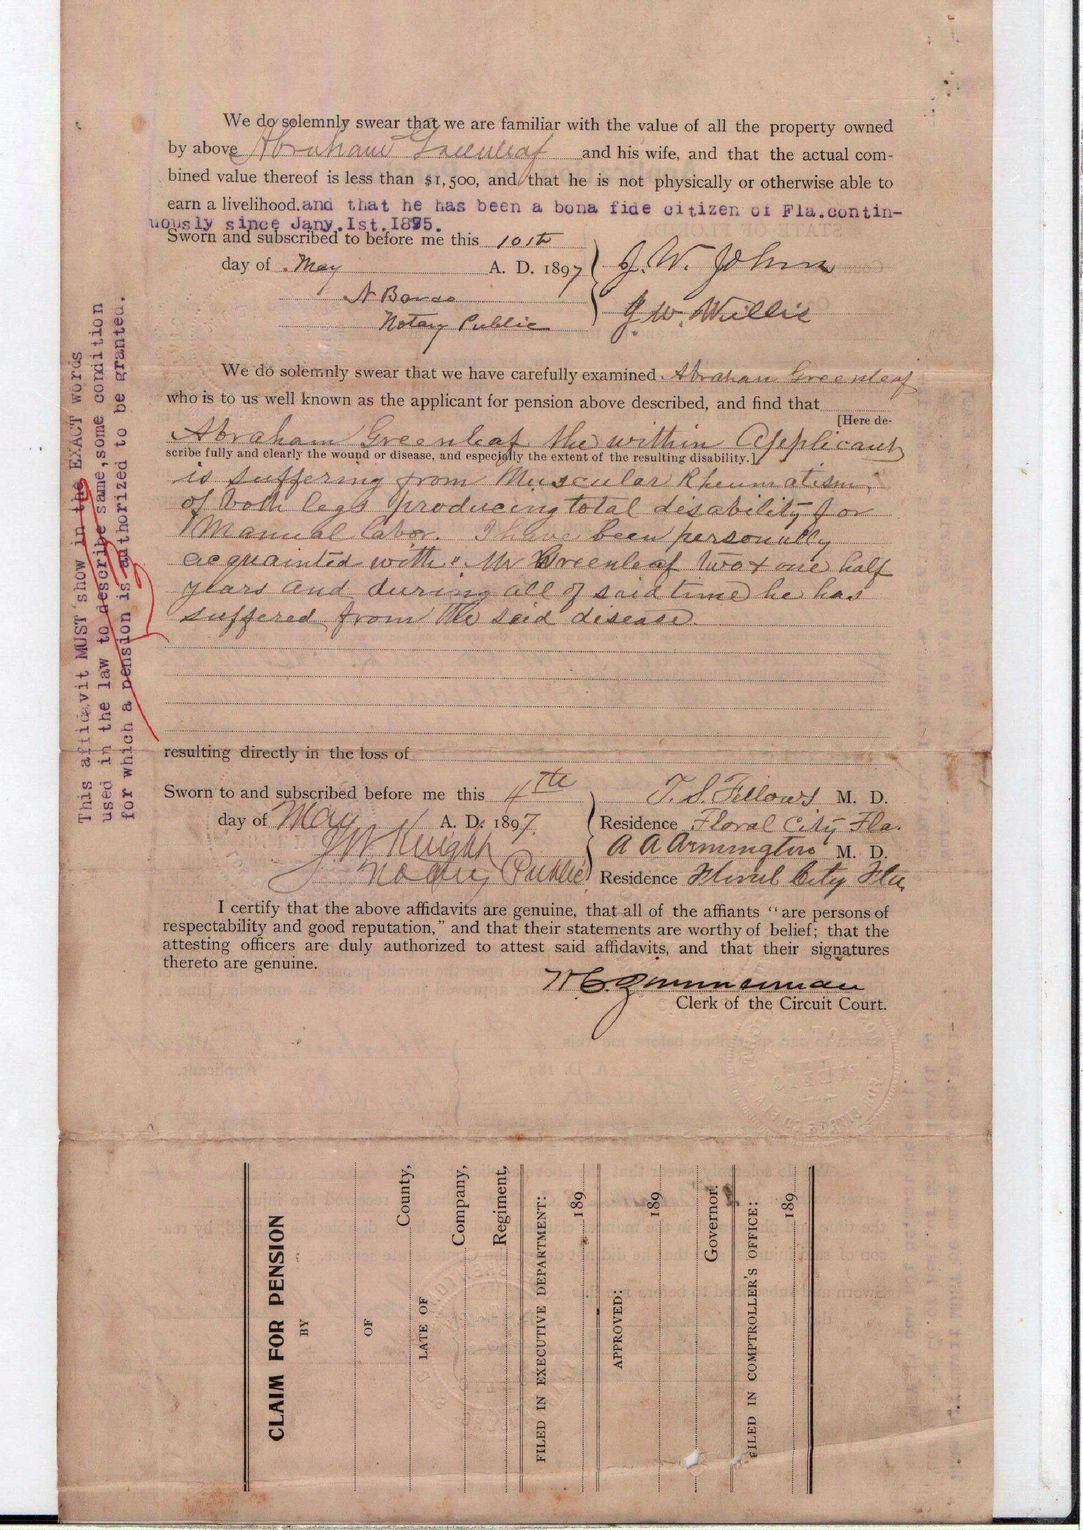 We do solemnly swear that we are familiar with the value of all the property owned
by above Abraham Greenleaf and his wife, and that the actual com-
bined value thereof is less than $1,500, and that he is not physically or otherwise able to
earn a livelihood. and that he has been a bona fide citizen of Fla. contin-
uously since Jany. 1st. 1895.
Sworn and subscribed to before me this 10th
day of May A. D. 1897
J. W. John
Notary Public
J. W. Willis
We do solemnly swear that we have carefully examined Abraham Greenleaf
who is to us well known as the applicant for pension above described, and find that
[Here de-
Abraham Greenleaf the within Applicant
scribe fully and clearly the wound or disease, and especially the extent of the resulting disability.]
is suffering from Muscular Rheumatism
of both legs producing total disability for
Manual labor. I have been personally
acquainted with Mr Greenleaf two & one half
years and during all of said time he has
suffered from the said disease.
resulting directly in the loss of
Sworn to and subscribed before me this 4th
day of May A. D. 1897.
J W Knight
Notary Public
T. S. Fellows M. D.
Residence Floral City Fla.
A A Armington M. D.
Residence Floral City Fla
I certify that the above affidavits are genuine, that all of the affiants "are persons of
respectability and good reputation," and that their statements are worthy of belief; that the
attesting officers are duly authorized to attest said affidavits, and that their signatures
thereto are genuine.
W C Zimmerman
Clerk of the Circuit Court.
This affidavit MUST show in the EXACT words
used in the law to describe same, some condition
for which a pension is authorized to be granted.
CLAIM FOR PENSION
BY
OF
County,
LATE OF
Company,
Regiment,
FILED IN EXECUTIVE DEPARTMENT:
189
APPROVED:
189
Governor.
FILED IN COMPTROLLER'S OFFICE:
189